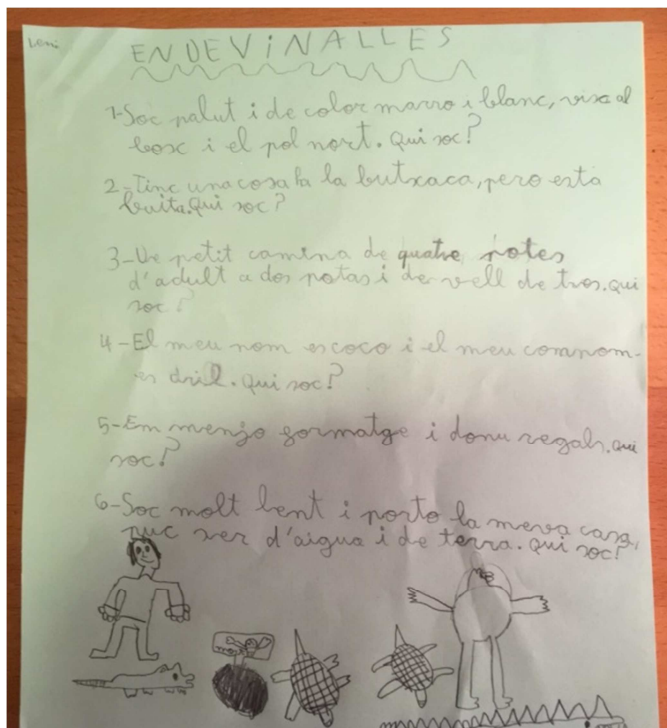 Leni
ENDEVINALLES
1-Soc palut i de color marro i blanc, visc al
bosc i el pol nort. Qui soc?
2-Tinc una cosa ha la butxaca, pero esta
buita. Qui soc?
3-De petit camina de quatre potes
d'adult a dos potas i de vell de tres. Qui
soc?
4-El meu nom es coco i el meu comnom
es dril. Qui soc?
5-Em menjo formatge i donu regals. Qui
soc?
6-Soc molt lent i porto la meva casa,
puc ser d'aigua i de terra. Qui soc?